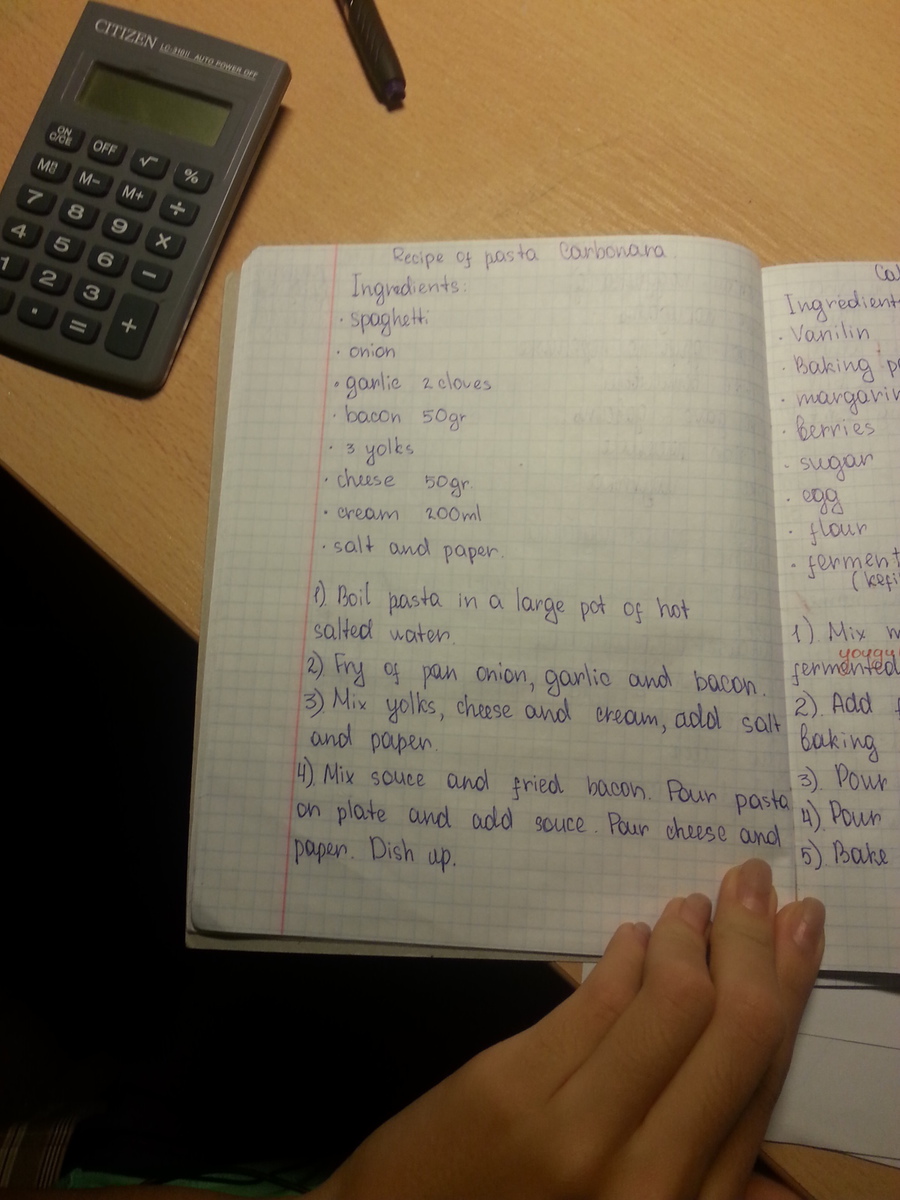 CITIZEN LC-310II AUTO POWER OFF
ON C/CE OFF √ %
M- M+ ÷
7 8 9 X
4 5 6 −
1 2 3 +
. =
Recipe of pasta Carbonara
Ingredients:
· spaghetti
· onion
· garlic 2 cloves
· bacon 50gr
· 3 yolks
· cheese 50gr.
· cream 200ml
· salt and paper.
1). Boil pasta in a large pot of hot
salted water.
2) Fry of pan onion, garlic and bacon.
3). Mix yolks, cheese and cream, add salt
and paper.
4). Mix souce and fried bacon. Pour pasta
on plate and add souce. Pour cheese and
paper. Dish up.
Ingredient
· Vanilin
· Baking
· margarin
· berries
· sugar
· egg
· flour
· ferment
(kefi
1). Mix
fermented
2). Add
baking
3). Pour
4). Pour
5). Bake